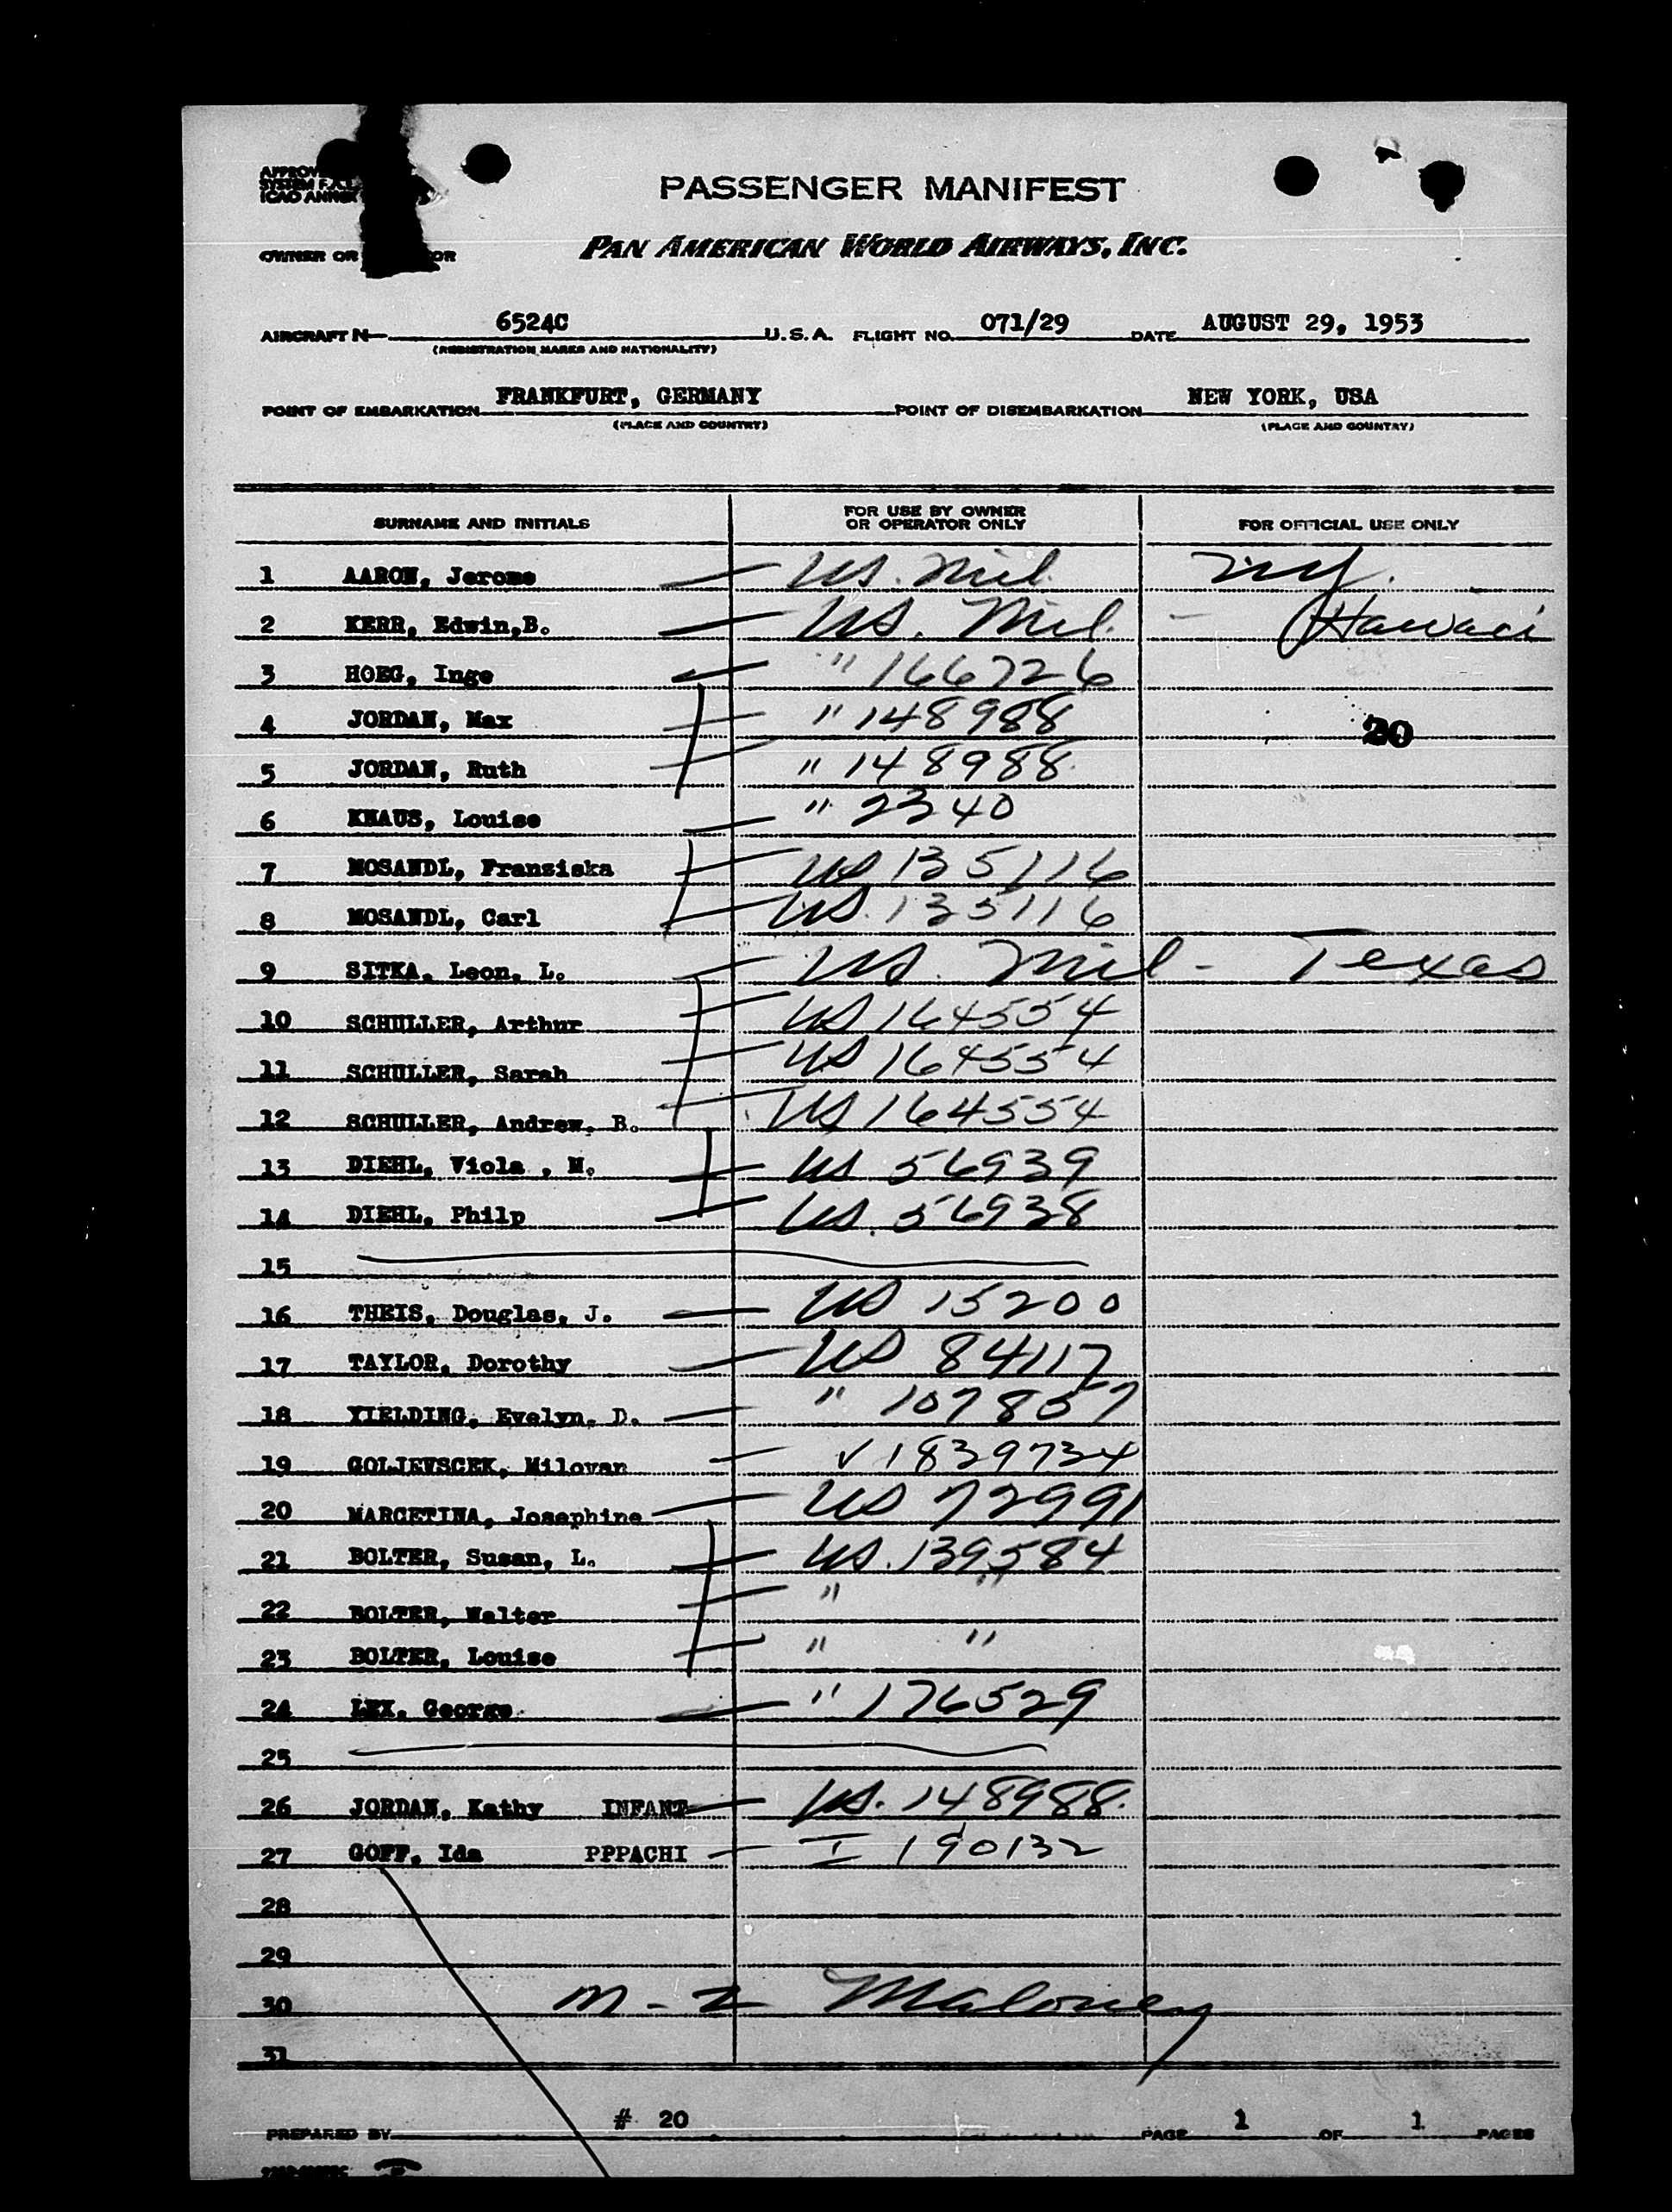 PASSENGER MANIFEST
PAN AMERICAN WORLD AIRWAYS, INC.
SYSTEM
ICAO ANNEX
OWNER OR
AIRCRAFT N 6524C U.S.A. FLIGHT NO. 071/29 DATE AUGUST 29, 1953
(REGISTRATION MARKS AND NATIONALITY)
POINT OF EMBARKATION FRANKFURT, GERMANY POINT OF DISEMBARKATION NEW YORK, USA
(PLACE AND COUNTRY) (PLACE AND COUNTRY)
SURNAME AND INITIALS FOR USE BY OWNER OR OPERATOR ONLY FOR OFFICIAL USE ONLY
1 AARON, Jerome US. Mil. NY.
2 KERR, Edwin,B. US. Mil. - Hawaii
3 HOEG, Inge " 166726
4 JORDAN, Max " 148988 20
5 JORDAN, Ruth " 148988
6 KNAUS, Louise " 2340
7 MOSANDL, Franziska US 135116
8 MOSANDL, Carl US. 135116
9 SITKA, Leon, L. US. Mil - Texas
10 SCHULLER, Arthur US 164554
11 SCHULLER, Sarah US 164554
12 SCHULLER, Andrew, B. US 164554
13 DIEHL, Viola , M. US 56939
14 DIEHL, Philp US. 56938
15
16 THEIS, Douglas, J. US 15200
17 TAYLOR, Dorothy US 84117
18 YIELDING, Evelyn, D. " 107857
19 GOLJEVSCEK, Milovan ✓ 1839734
20 MARCETINA, Josephine US 72991
21 BOLTER, Susan, L. US. 139584
22 BOLTER, Walter " "
23 BOLTER, Louise " "
24 LEX, George " 176529
25
26 JORDAN, Kathy INFANT US. 148988.
27 GOFF, Ida PPPACHI I 190132
28
29
30 M - 2 Maloney
31
PREPARED BY # 20 PAGE 1 OF 1 PAGES